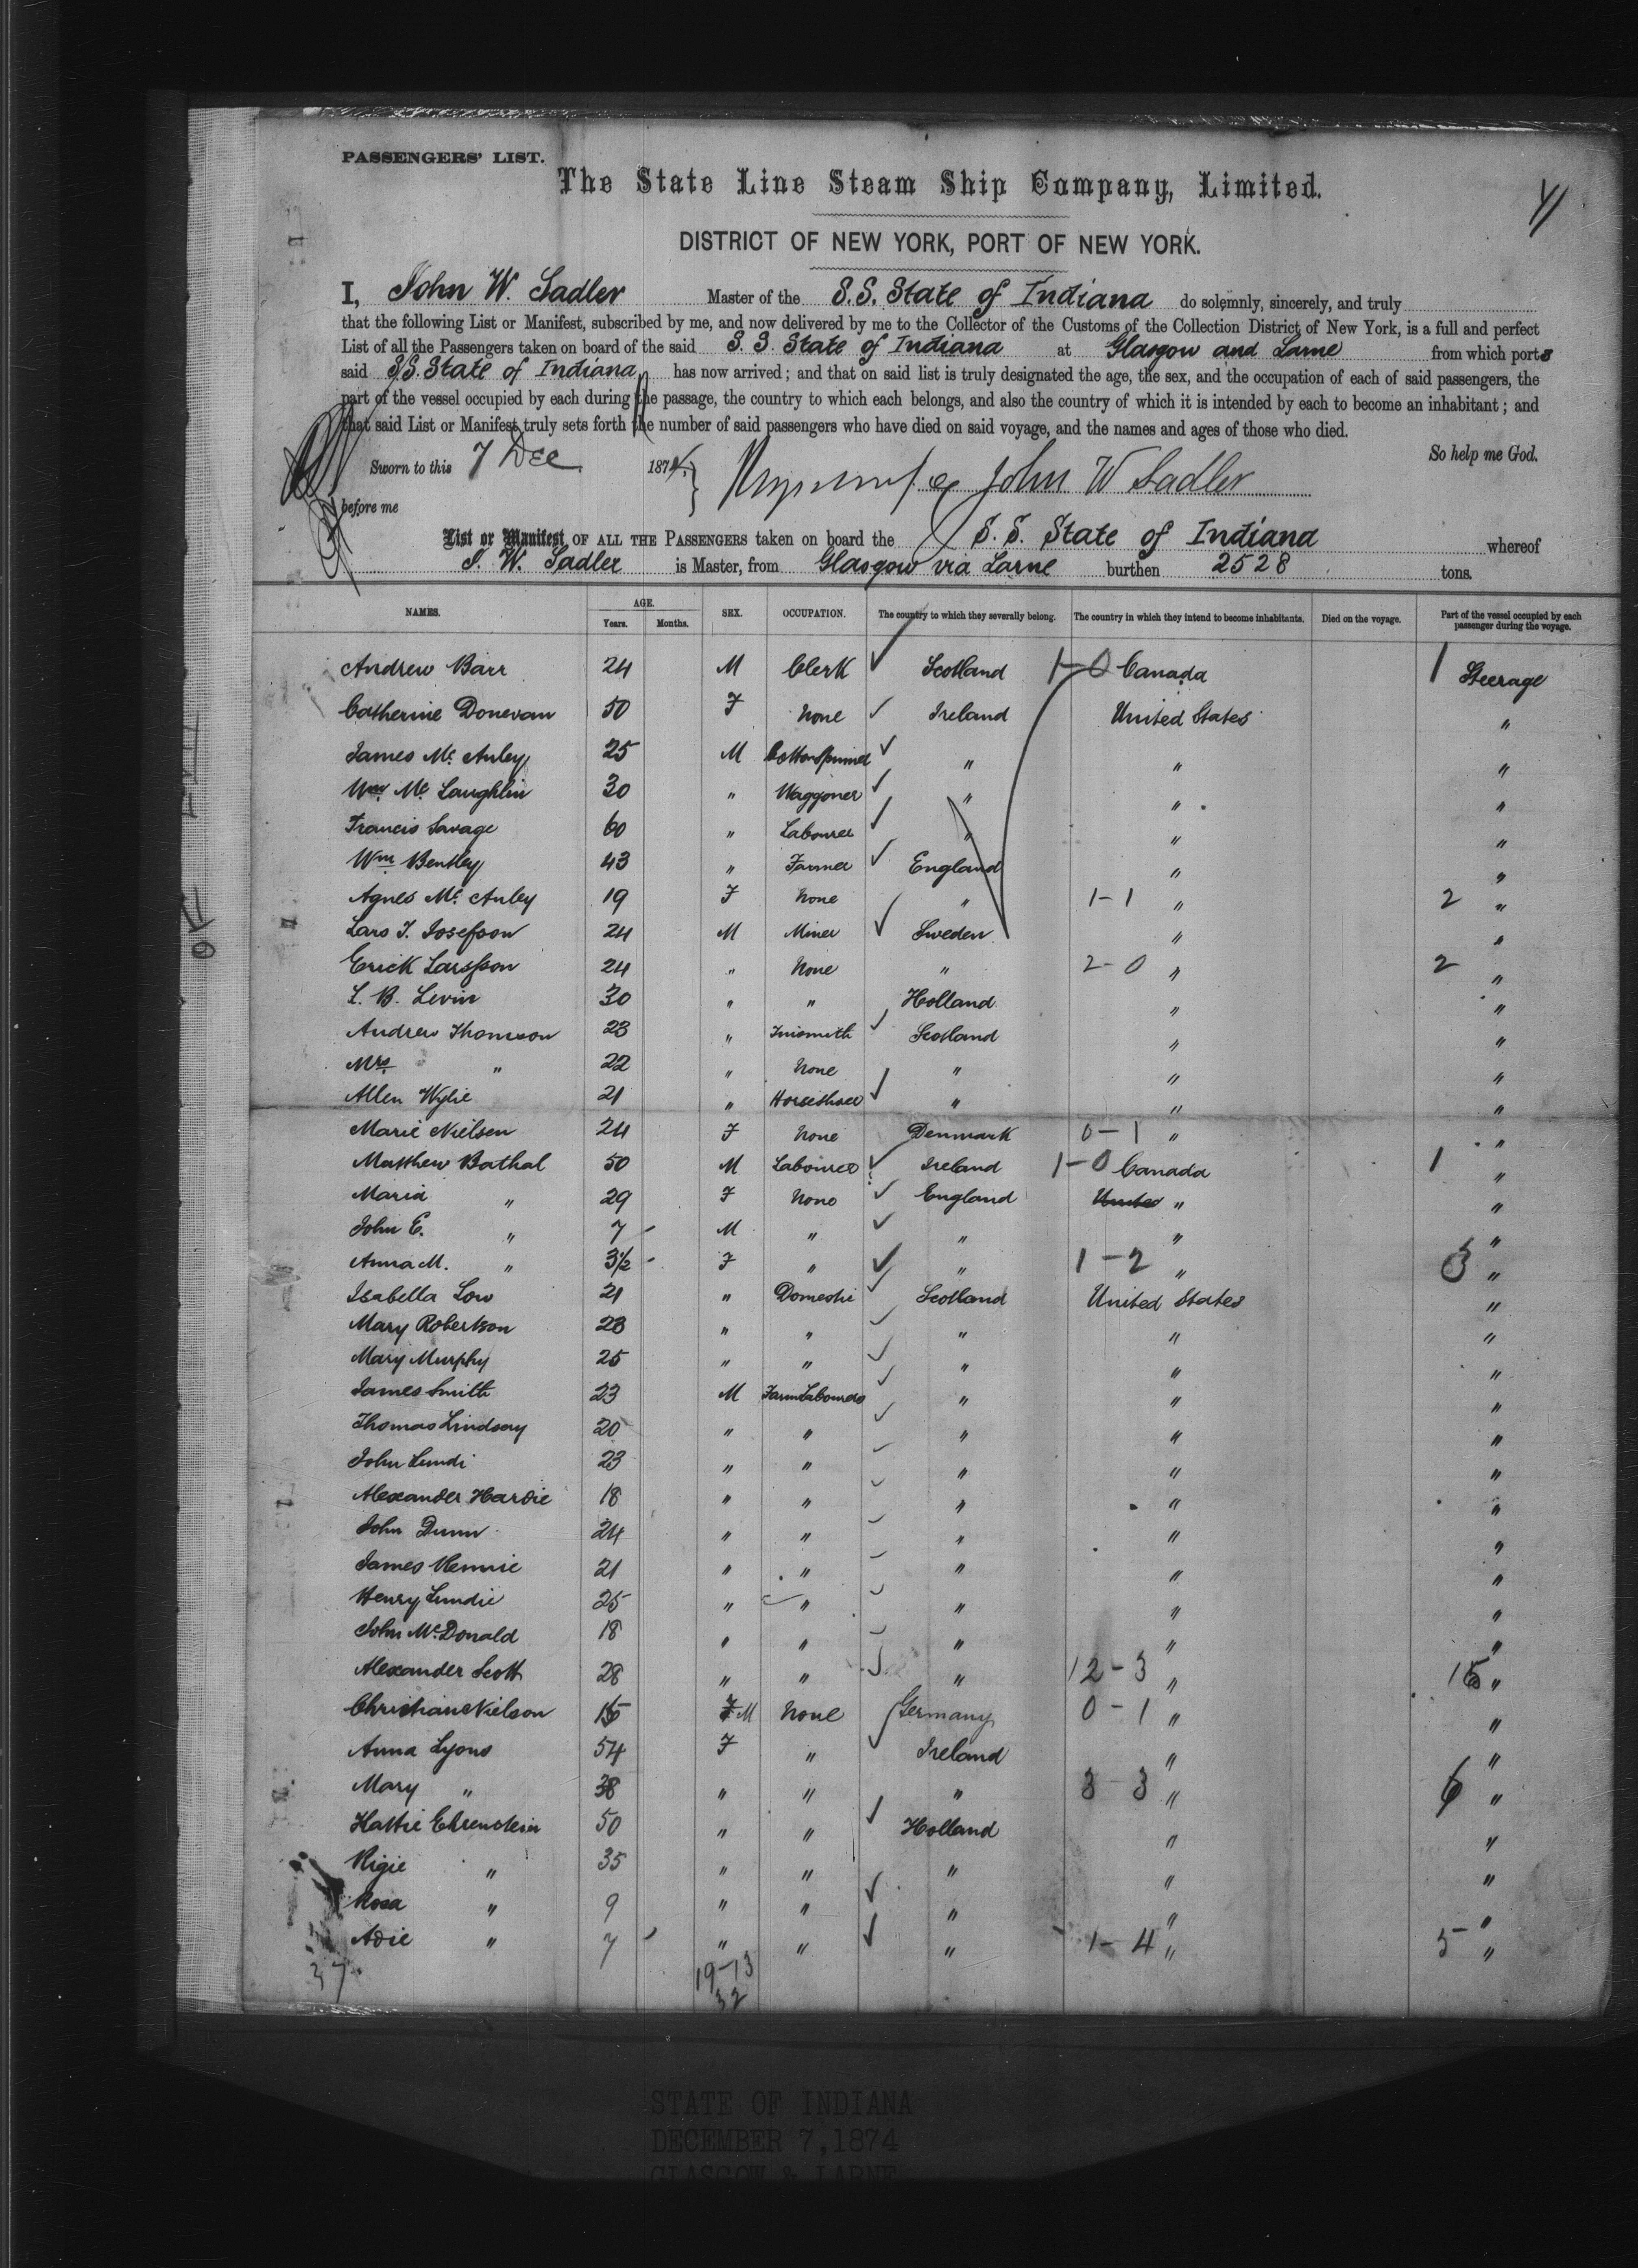 PASSENGERS' LIST.
The State Line Steam Ship Company, Limited.
DISTRICT OF NEW YORK, PORT OF NEW YORK.
I, John W. Sadler Master of the S.S. State of Indiana do solemnly, sincerely, and truly
that the following List or Manifest, subscribed by me, and now delivered by me to the Collector of the Customs of the Collection District of New York, is a full and perfect
List of all the Passengers taken on board of the said S.S. State of Indiana at Glasgow and Larne from which ports
said S.S. State of Indiana has now arrived; and that on said list is truly designated the age, the sex, and the occupation of each of said passengers, the
part of the vessel occupied by each during the passage, the country to which each belongs, and also the country of which it is intended by each to become an inhabitant; and
that said List or Manifest truly sets forth the number of said passengers who have died on said voyage, and the names and ages of those who died.
So help me God.
Sworn to this 7 Dec 1874 John W Sadler
before me
List or Manifest OF ALL THE PASSENGERS taken on board the S. S. State of Indiana whereof
J. W. Sadler is Master, from Glasgow via Larne burthen 2528 tons.
NAMES. AGE. Years. Months. SEX. OCCUPATION. The country to which they severally belong. The country in which they intend to become inhabitants. Died on the voyage. Part of the vessel occupied by each passenger during the voyage.
Andrew Barr 24 M Clerk Scotland 1-0 Canada 1 Steerage
Catherine Donevan 50 F None Ireland United States "
James Mc Auley 25 M Cotton Spinner " " "
Wm Mc Laughlin 30 " Waggoner " " "
Francis Savage 60 " Labourer " " "
Wm Bentley 43 " Farmer England " "
Agnes Mc Auley 19 F None " 1-1 " 2 "
Lars J. Josefson 24 M Miner Sweden " "
Erick Larsson 24 " None " 2-0 " 2 "
L. B. Levin 30 " " Holland " "
Andrew Thomson 23 " Tinsmith Scotland " "
Mrs " 22 " None " " "
Allen Wylie 21 " Horseshoer " " "
Marie Nielsen 24 F None Denmark 0-1 " "
Matthew Bathal 50 M Labourer Ireland 1-0 Canada 1 "
Maria " 29 F None England United " "
John E. " 7 M " " " "
Anna M. " 3½ F " " 1-2 " 3 "
Isabella Low 21 " Domestic Scotland United States "
Mary Robertson 23 " " " " "
Mary Murphy 25 " " " " "
James Smith 23 M Farm Labourers " " "
Thomas Lindsay 20 " " " " "
John Lundi 23 " " " " "
Alexander Hardie 18 " " " " "
John Dunn 24 " " " " "
James Rennie 21 " " " " "
Henry Lundie 25 " " " " "
John McDonald 18 " " " " "
Alexander Scott 28 " " " 12-3 " 15 "
Christian Nielson 15 F M None Germany 0-1 " "
Anna Lyons 54 F " Ireland " "
Mary " 38 " " " 3 3 " 6 "
Hattie Ehrenstein 50 " " Holland " "
Rigie " 35 " " " " "
Rosa " 9 " " " " "
Adie " 7 " " " 1-4 " 5 "
37 19-13
32
STATE OF INDIANA
DECEMBER 7, 1874
GLASGOW & LARNE